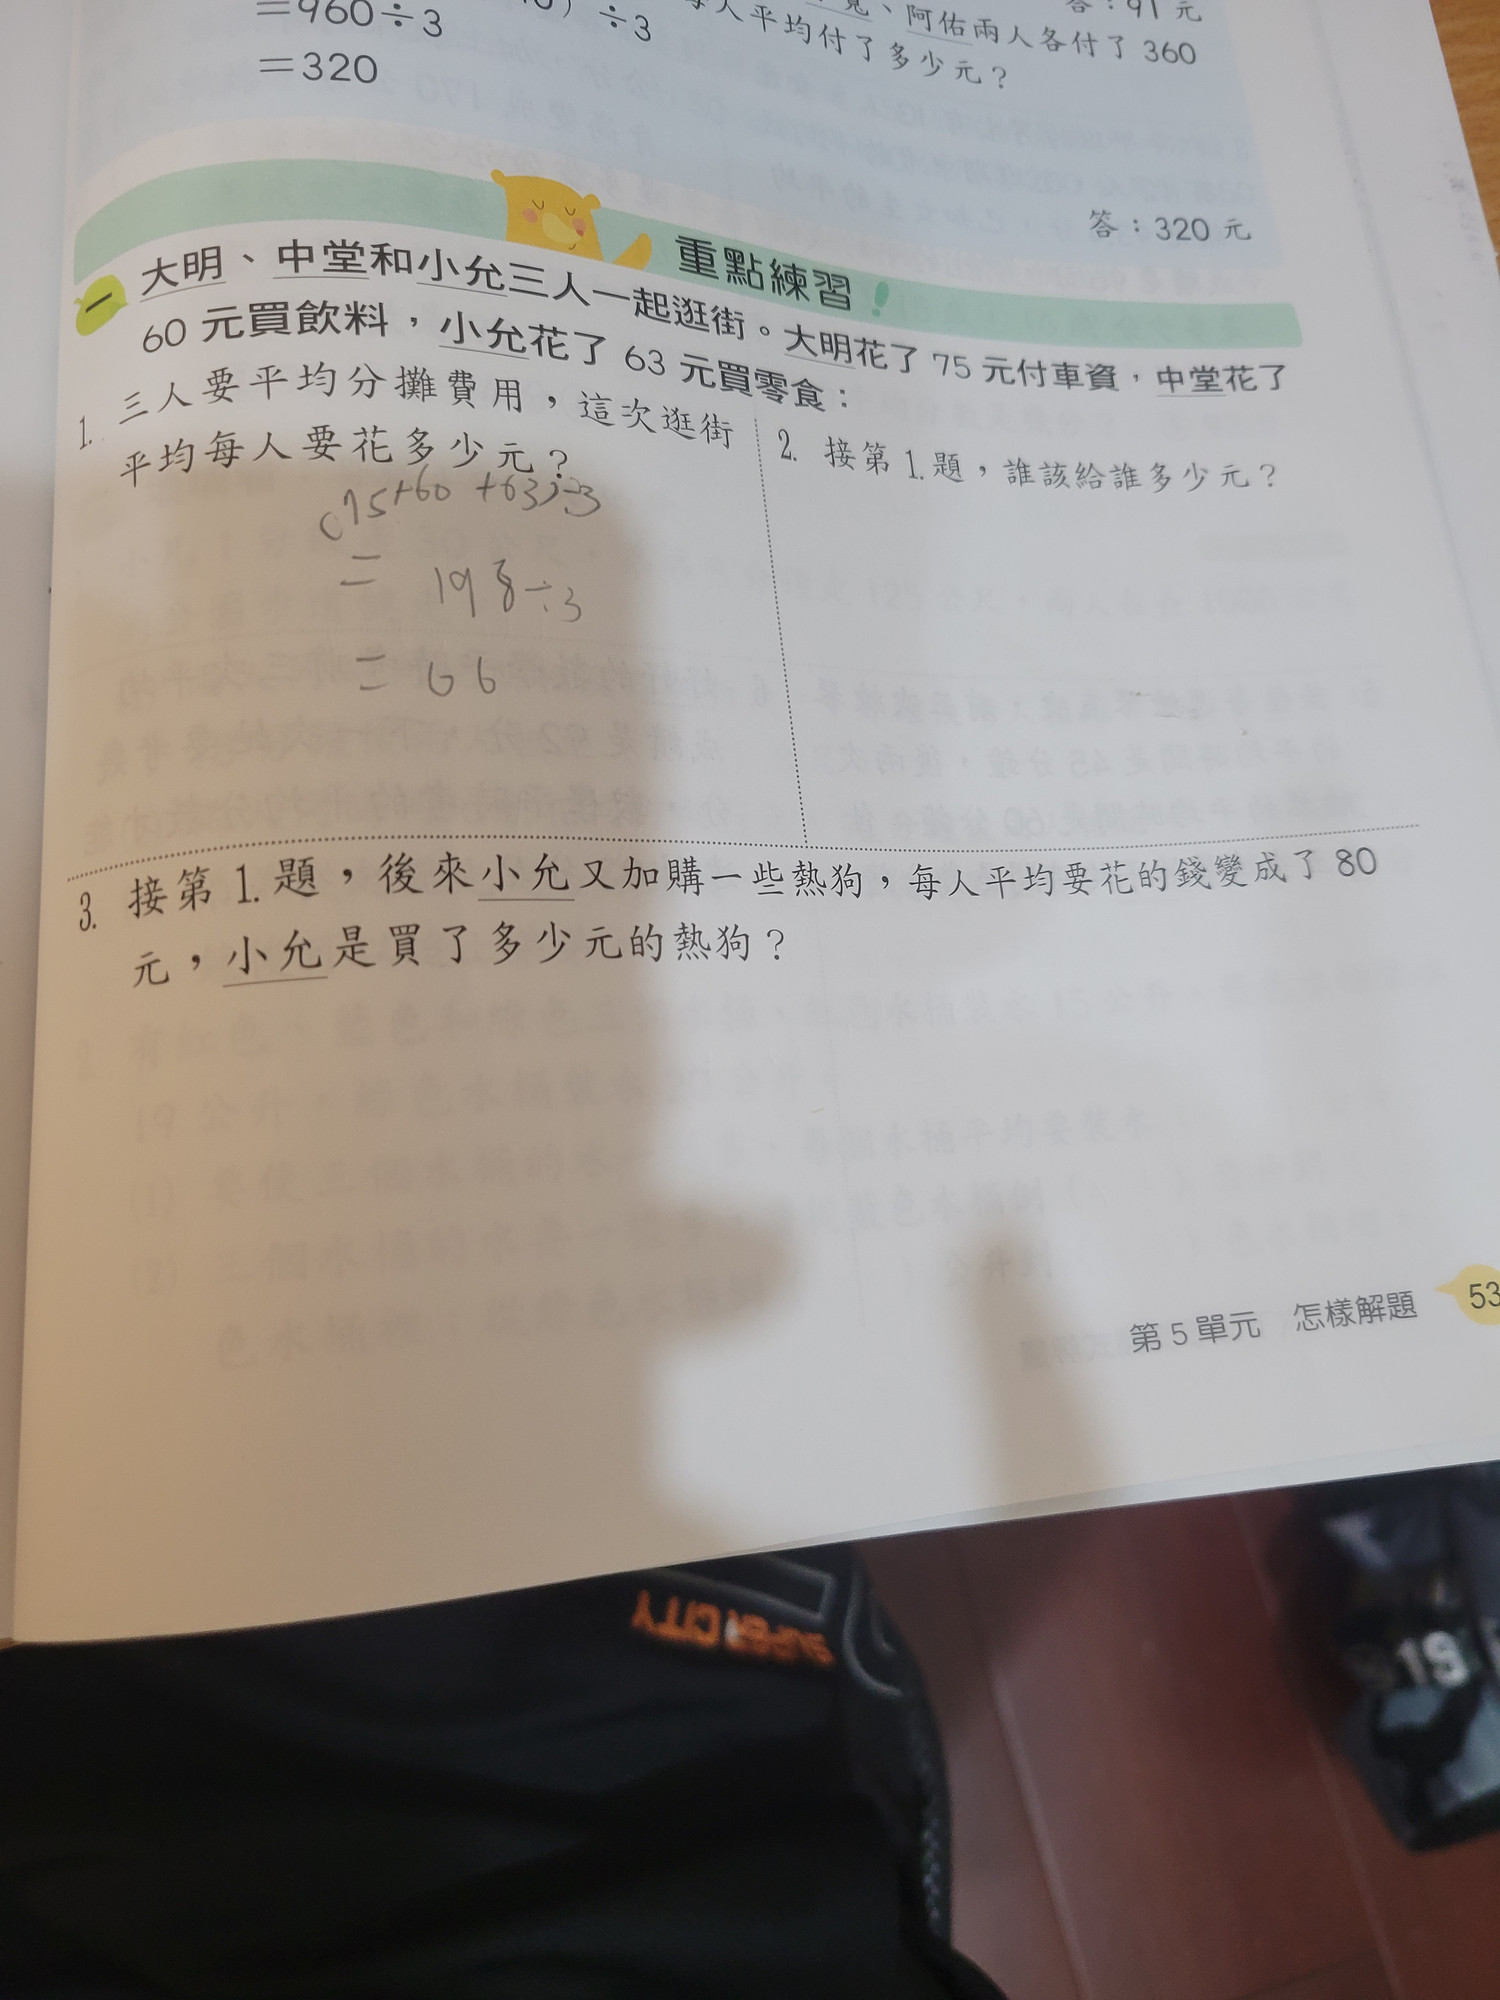 =960÷3
÷3
=320
答:91 元
、阿佑兩人各付了 360
人平均付了多少元?
答:320 元
重點練習!
一 大明、中堂和小允三人一起逛街。大明花了 75 元付車資,中堂花了
60 元買飲料,小允花了 63 元買零食:
1. 三人要平均分攤費用,這次逛街
平均每人要花多少元?
(75+60+63)÷3
= 198÷3
= 66
2. 接第 1. 題,誰該給誰多少元?
3. 接第 1. 題,後來小允又加購一些熱狗,每人平均要花的錢變成了 80
元,小允是買了多少元的熱狗?
第 5 單元 怎樣解題
53
SUPER CITY
19